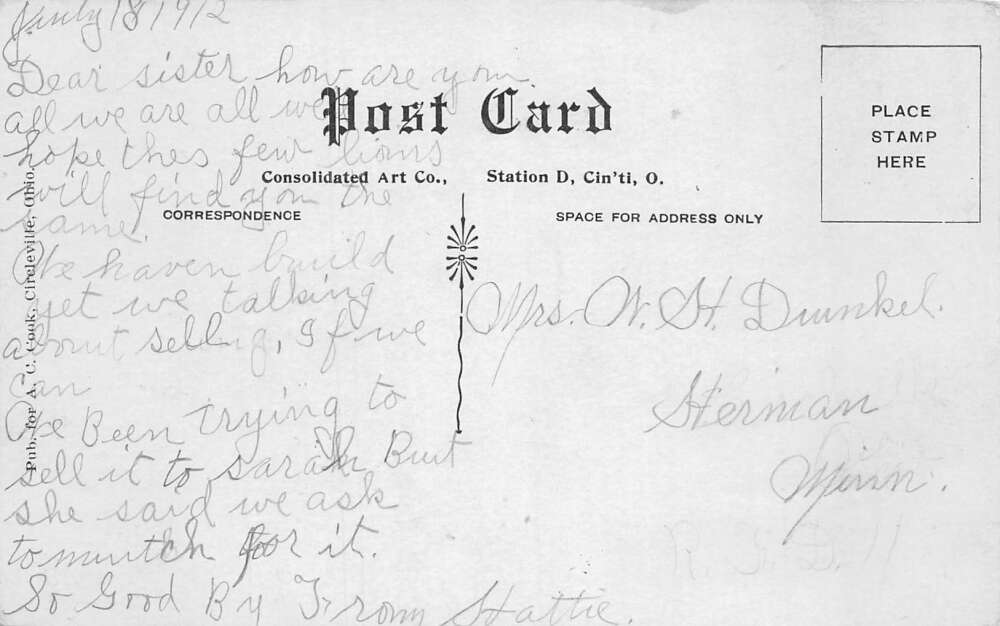 July 18 1912
Dear sister how are you
all we are all well
hope thes few lions
will find you the
same.
We haven build
yet we talking
about selling, If we
can
We Been trying to
sell it to sarah But
she said we ask
to mutch for it.
So Good By From Hattie.
Post Card
Consolidated Art Co., Station D, Cin'ti, O.
CORRESPONDENCE
SPACE FOR ADDRESS ONLY
PLACE
STAMP
HERE
Mrs. W. H. Dunkel.
Sherman
Minn.
R. F. D. 11
Pub. for A. C. Cook, Circleville, Ohio.